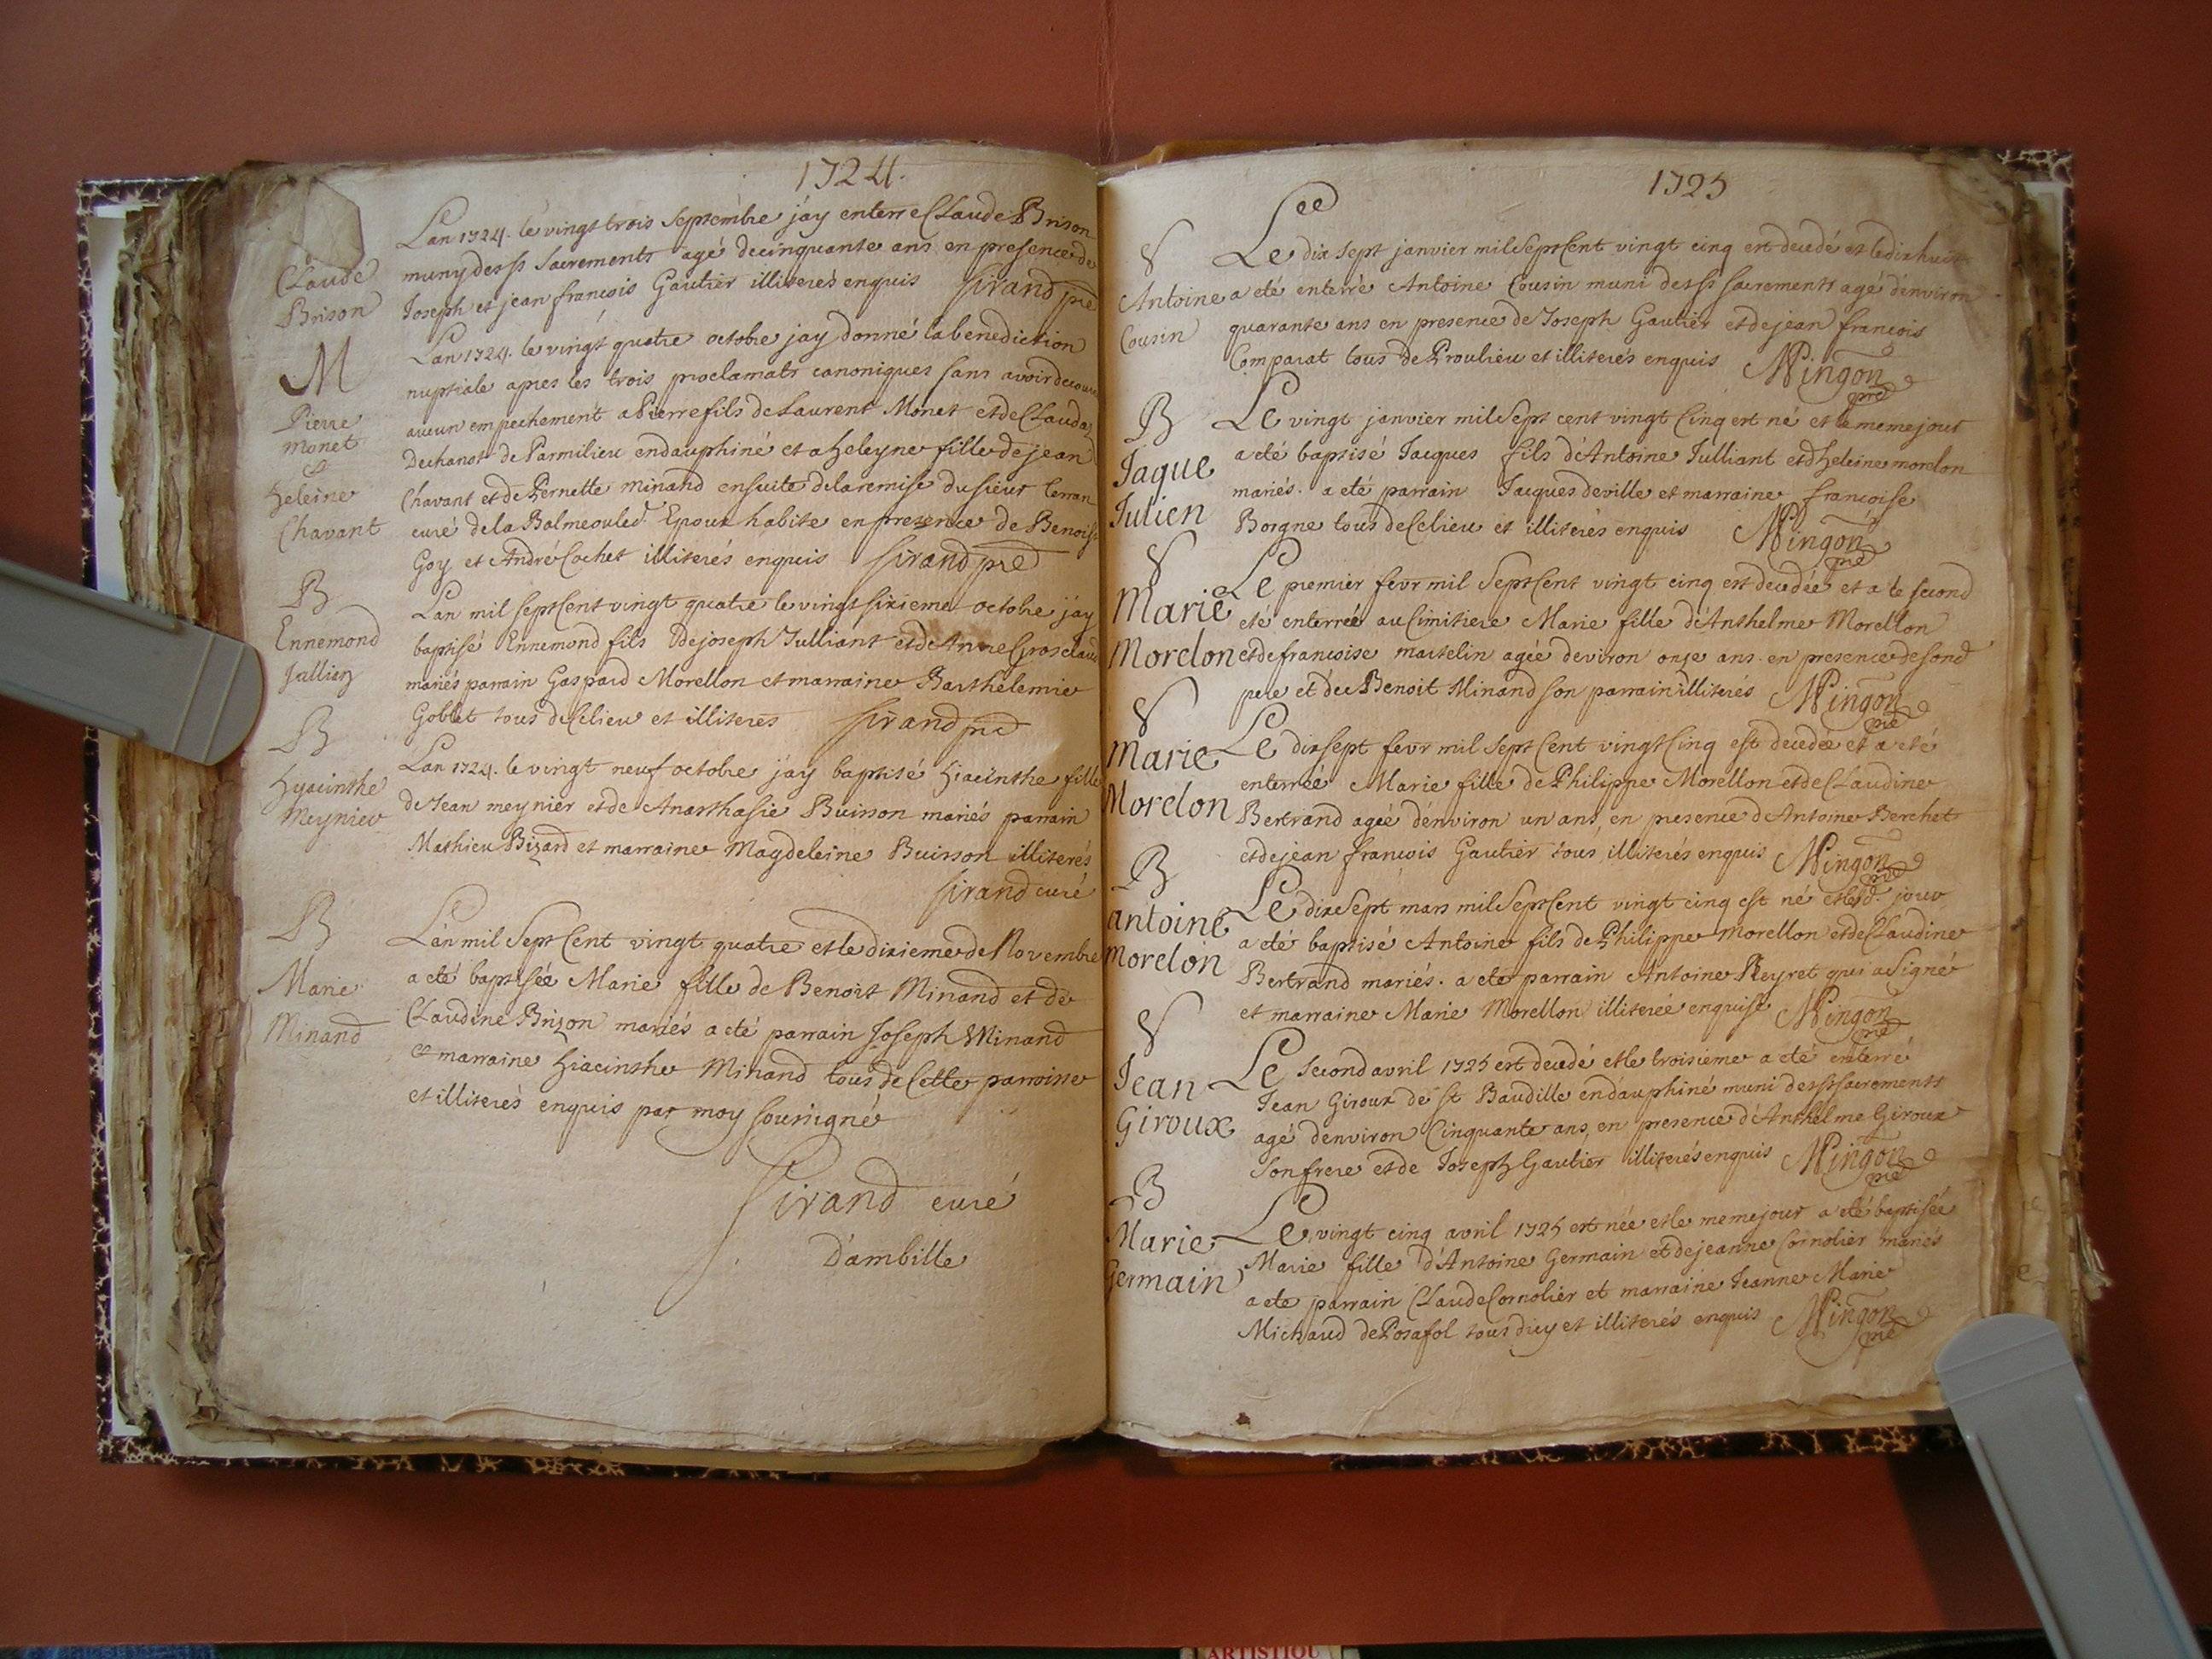 1724.
Claude
Brison
Lan 1724. le vingt trois septembre j'ay enterre Claude Brison
muny des sts sacrements agé de cinquante ans en presence de
Joseph et jean francois Gautier illiterés enquis Sirand pre
M
Pierre
monet
&
heleine
Chavant
Lan 1724. le vingt quatre octobre jay donné la benediction
nuptiale apres les trois proclamats canoniques sans avoir
aucun empechement a Pierre fils de Laurent Monet et de Clauda
Dechanot de Parmilieu en dauphiné et a heleyne fille de jean
Chavant et de Pernette minand ensuite de la remise du sieur
curé de la Balme ou led. Epoux habite en presence de Benoist
Goy et André Cochet illiterés enquis Sirand pre
B
Ennemond
Jullien
Lan mil sept Cent vingt quatre le vingt sixieme octobre j'ay
baptisé Ennemond fils de joseph Julliant et de Anne Grosclaud
mariés parrain Gaspard Morellon et marraine Barthelemie
Goblet tous de Celieu et illiteres Sirand pre
B
hyacinthe
Meynier
Lan 1724. le vingt neuf octobre j'ay baptisé hiacinthe fille
de Jean meynier et de Anasthasie Buisson mariés parrain
Mathieu Bizard et marraine Magdeleine Buisson illiterés
Sirand curé
B
Marie
Minand
L'an mil Sept Cent vingt quatre et le dixieme de Novembre
a eté baptisée Marie fille de Benoit Minand et de
Claudine Brizon mariés a eté parrain Joseph Minand
et marraine hiacinthe Minand tous de Cette parroisse
et illiterés enquis par moy soussigné
Sirand curé
D'ambille
1725
S
Antoine
Cousin
Lee
Le dix sept janvier mil Sept Cent vingt cinq est decedé et le dix huit
a eté enterré Antoine Cousin muni des sts sacrements agé d'environ
quarante ans en presence de Joseph Gautier et de jean francois
Comparat tous de Proulieu et illiterés enquis Mingon
pre
B
Jaque
Julien
Le vingt janvier mil Sept cent vingt Cinq est né et le meme jour
a eté baptisé Jacques fils d'Antoine Julliant et d'heleine morelon
mariés. a eté parrain Jacques deville et marraine francoise
Borgne tous de Celieu et illiterés enquis Mingon
pre
S
Marie
Morelon
Le premier fevr mil Sept Cent vingt cinq est decedée et a le second
eté enterrée au Cimitiere Marie fille d'Anthelme Morellon
et de francoise martelin agée deviron onze ans en presence de sond
pere et de Benoit Minand son parrain illiterés Mingon
pre
S
Marie
Morelon
Le dix sept fevr mil Sept Cent vingt Cinq est decedée et a eté
enterreé Marie fille de Philippe Morellon et de Claudine
Bertrand ageé d'environ un ans, en presence d'Antoine Berchet
et de jean francois Gautier tous illiterés enquis Mingon
pre
B
antoine
Morelon
Le dix Sept mars mil Sept Cent vingt cinq est né et led. jour
a eté baptisé Antoine fils de Philippe Morellon et de Claudine
Bertrand mariés. a eté parrain Antoine Reyret qui a Signé
et marraine Marie Morellon illiterée enquise Mingon
pre
S
Jean
Giroux
Le Second avril 1725 est decedé et le troisieme a eté enterré
Jean Giroux de st Baudille en dauphiné muni des sts sacrements
agé d'environ Cinquante ans, en presence d'Anthelme Giroux
Son frere et de Joseph Gautier illiterés enquis Mingon
pre
B
Marie
Germain
Le vingt cinq avril 1725 est née et le meme jour a eté baptisée
Marie fille d'Antoine Germain et de jeanne Cornolier mariés
a ete parrain Claude Cornolier et marraine Jeanne Marie
Michaud de Posafol tous d'icy et illiterés enquis Mingon
pre
ARTISTIQU